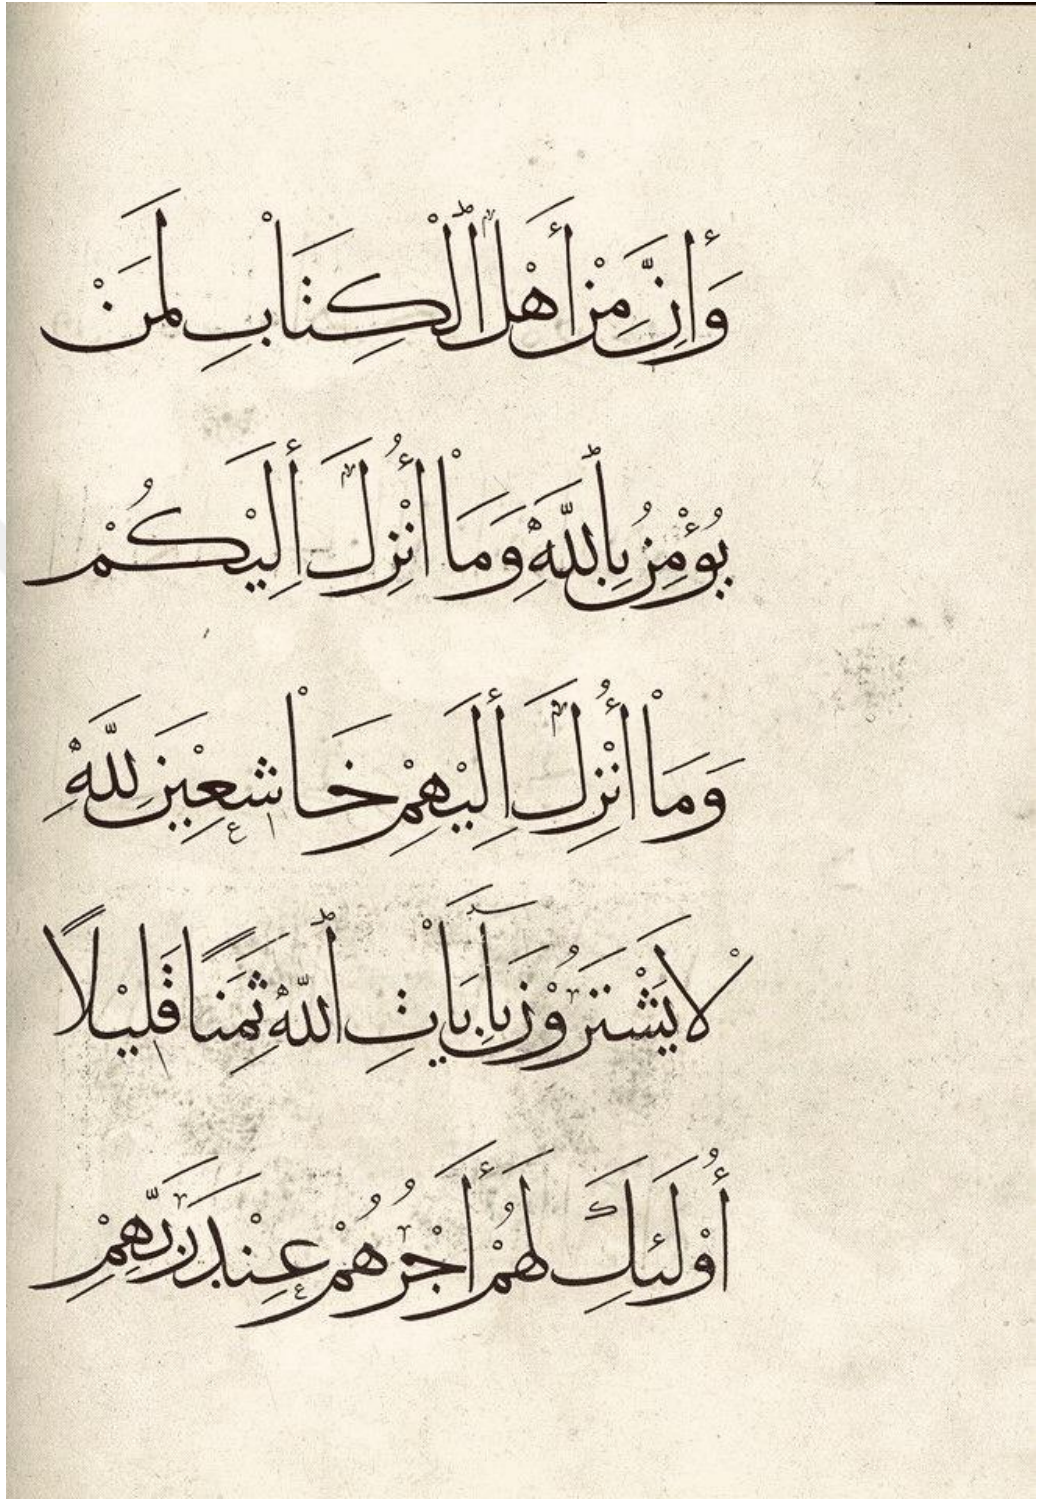 وَإِنَّ مِنْ أَهْلِ الْكِتَابِ لَمَنْ
يُؤْمِنُ بِاللَّهِ وَمَا أُنْزِلَ إِلَيْكُمْ
وَمَا أُنْزِلَ إِلَيْهِمْ خَاشِعِيْنَ لِلَّهِ
لَا يَشْتَرُوْنَ بِأَيَاتِ اللَّهِ ثَمَنًا قَلِيْلًا
أُوْلَئِكَ لَهُمْ أَجْرُهُمْ عِنْدَ رَبِّهِمْ